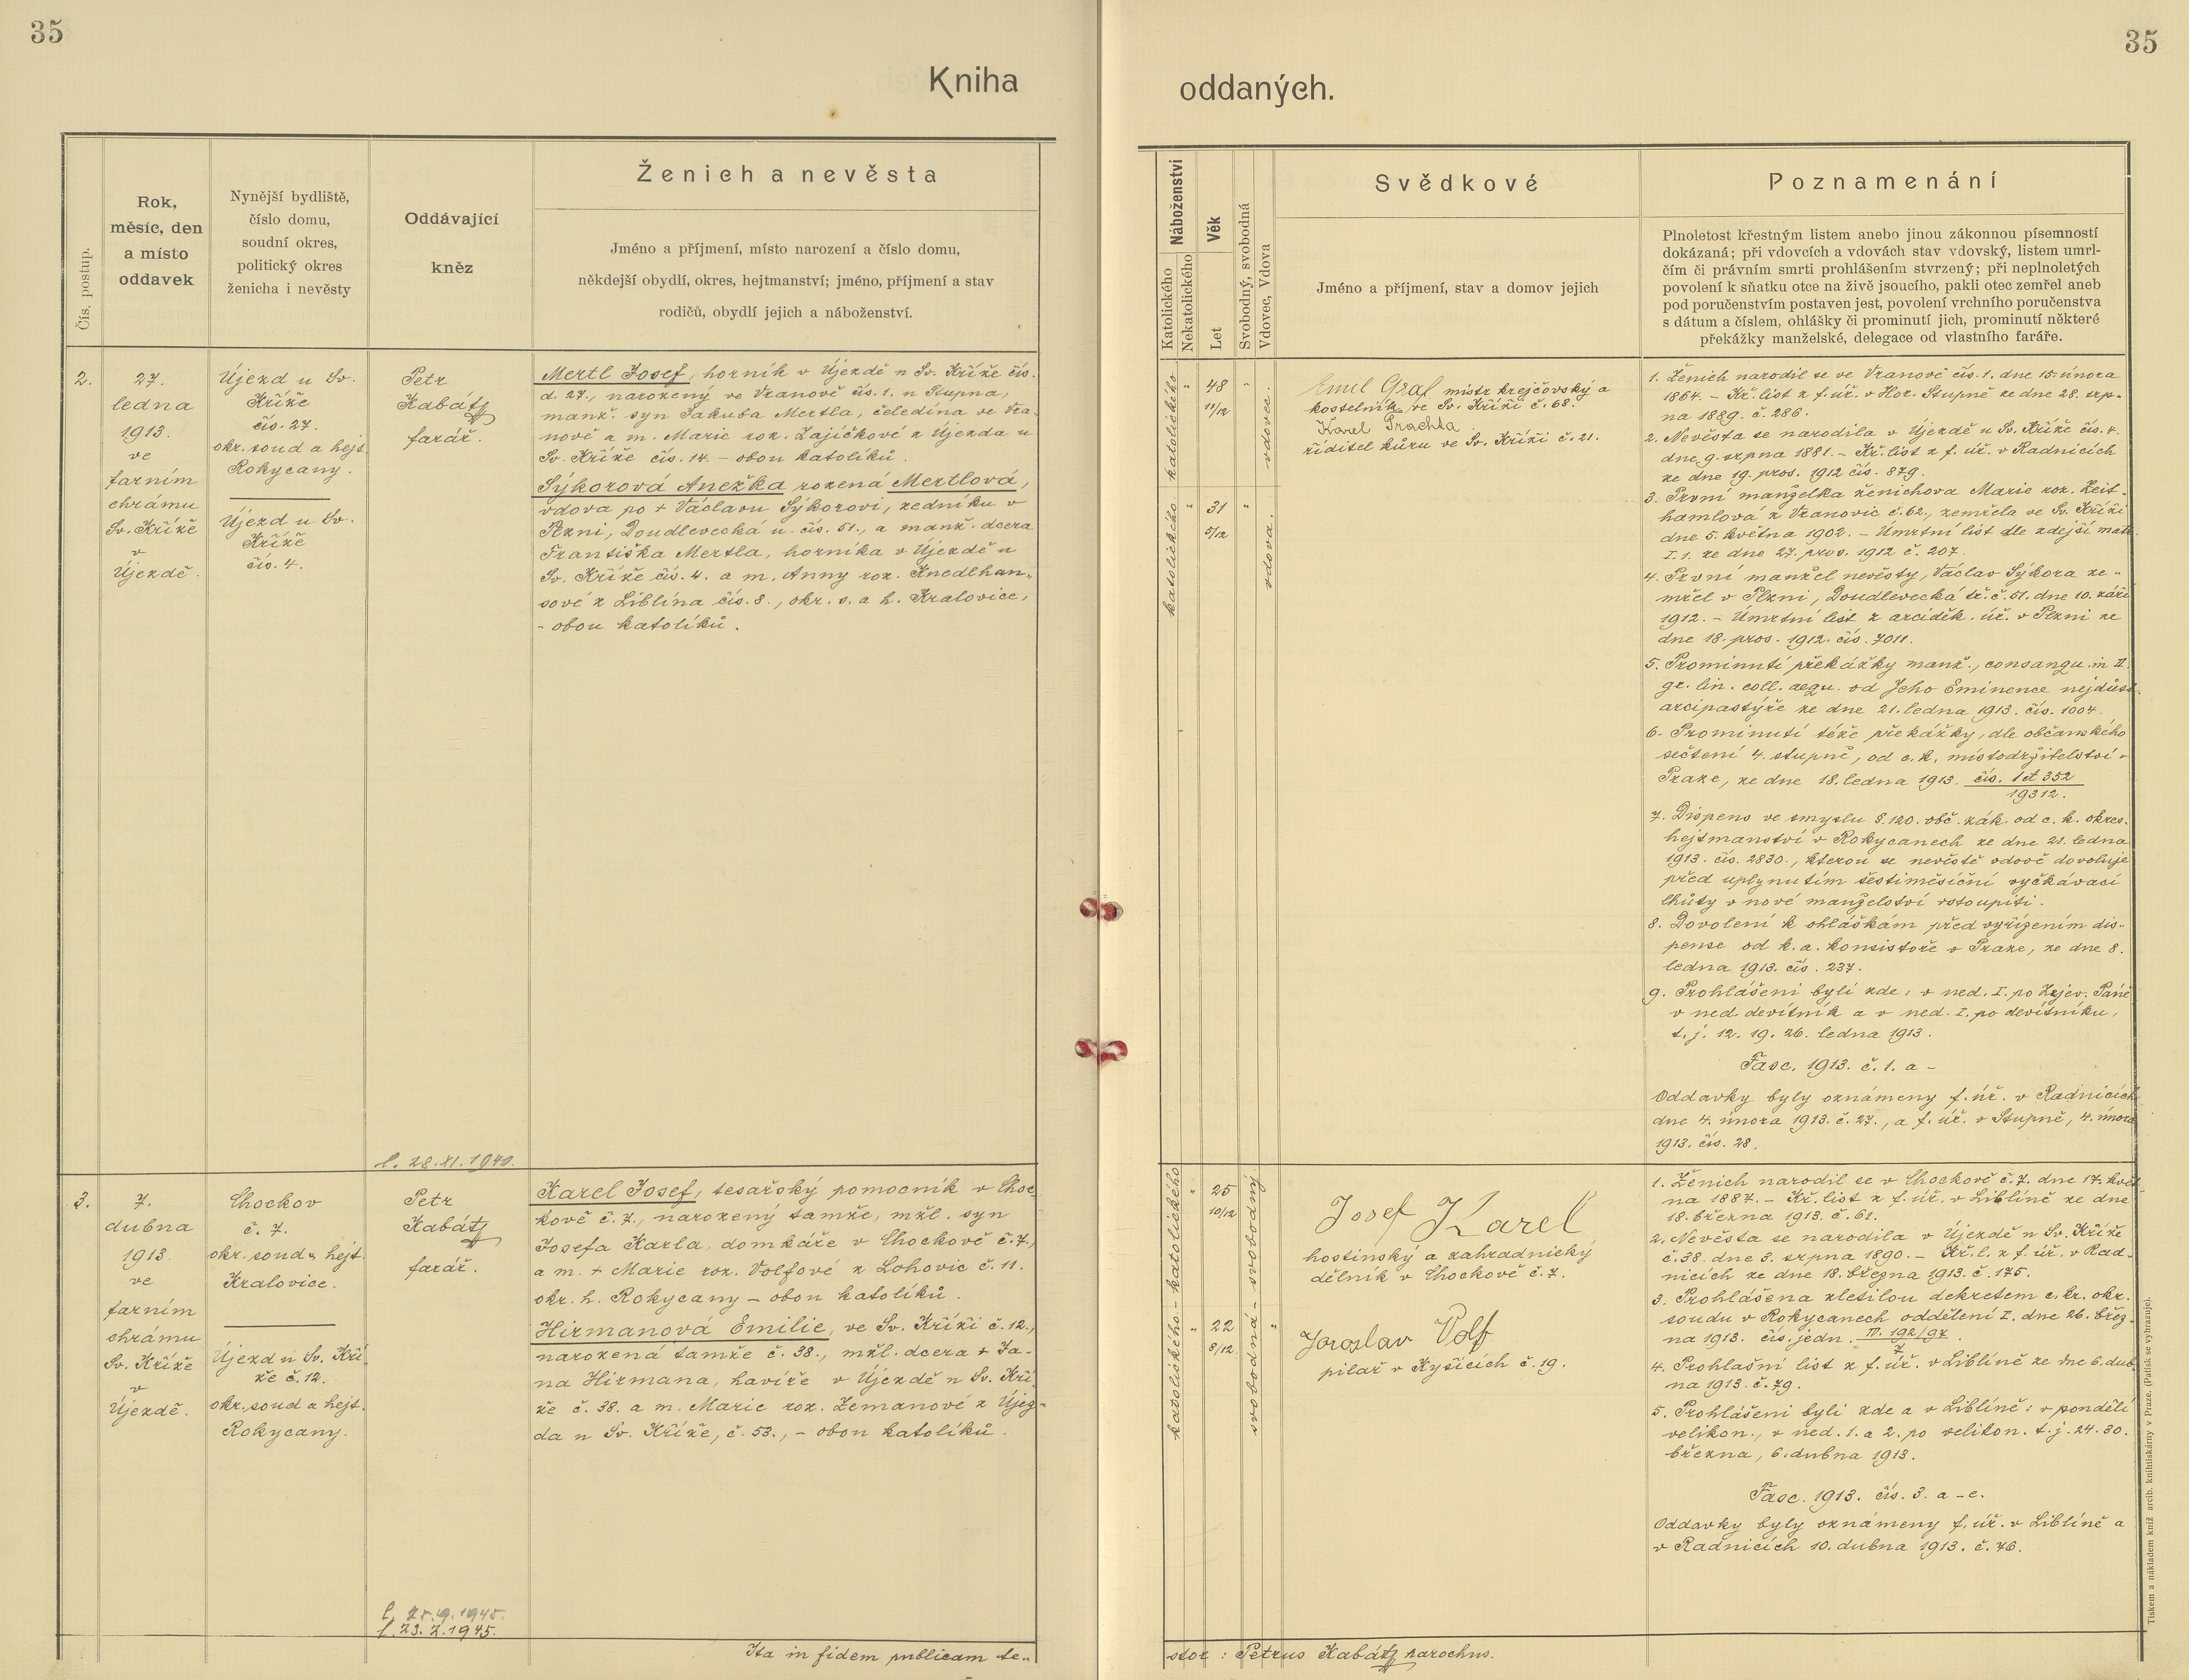 35
35
Kniha
oddaných.
Čís. postup.
Rok,
měsíc, den
a místo
oddavek
Nynější bydliště,
číslo domu,
soudní okres,
politický okres
ženicha i nevěsty
Oddávající
kněz
Ženich a nevěsta
Jméno a příjmení, místo narození a číslo domu,
někdejší obydlí, okres, hejtmanství; jméno, příjmení a stav
rodičů, obydlí jejich a náboženství.
Náboženství
Katolického
Nekatolického
Věk
Let
Svobodný, svobodná
Vdovec, Vdova
Svědkové
Jméno a příjmení, stav a domov jejich
Poznamenání
Plnoletost křestným listem anebo jinou zákonnou písemností
dokázaná; při vdovcích a vdovách stav vdovský, listem umrl-
čím či právním smrti prohlášením stvrzený; při neplnoletých
povolení k sňatku otce na živě jsoucího, pakli otec zemřel aneb
pod poručenstvím postaven jest, povolení vrchního poručenstva
s dátum a číslem, ohlášky či prominutí jich, prominutí některé
překážky manželské, delegace od vlastního faráře.
2.
27.
ledna
1913.
ve
farním
chrámu
Sv. Kříže
v
Újezdě.
Újezd u Sv.
Kříže
čís. 27.
okr. soud a hejt.
Rokycany.
Újezd u Sv.
Kříže
čís. 4.
Petr
Kabátz
farář.
l. 28.XI.1940.
Mertl Josef, horník v Újezdě u Sv. Kříže čís.
d. 27., narozený ve Vranově čís. 1. u Stupna,
manž. syn Jakuba Mertla, čeledína ve Vra-
nově a m. Marie roz. Zajíčkové z Újezda u
Sv. Kříže čís. 14. – obou katolíků.
Sýkorová Anežka rozená Mertlová,
vdova po + Václavu Sýkorovi, zedníku v
Plzni, Doudlevecká u. čís. 51., a manž. dcera
Františka Mertla, horníka v Újezdě u
Sv. Kříže čís. 4. a m. Anny roz. Knedlhan-
sové z Liblína čís. 8., okr. s. a h. Kralovice,
– obou katolíků.
katolického
"
48
11/12
"
vdovec.
katolického
"
31
5/12
"
vdova.
Emil Graf, mistr krejčovský a
kostelník ve Sv. Kříži č. 68.
Karel Prachta
řiditel kůru ve Sv. Kříži č. 21.
1. Ženich narodil se ve Vranově čís. 1. dne 15. února
1864. – Kř. list z f. úř. v Hor. Stupně ze dne 28. srp-
na 1889. č. 286.
2. Nevěsta se narodila v Újezdě u Sv. Kříže čís. 4.
dne 9. srpna 1881. – Kř. list z f. úř. v Radnicích
ze dne 19. pros. 1912 čís. 879.
3. První manželka ženichova Marie roz. Zeit-
hamlová z Vranovic č. 62., zemřela ve Sv. Kříži
dne 5. května 1902. – Úmrtní list dle zdejší matr.
I. 1. ze dne 27. pros. 1912 č. 207.
4. První manžel nevěsty, Václav Sýkora ze-
mřel v Plzni, Doudlevecká tř. č. 51. dne 10. září
1912. – Úmrtní list z arciděk. úř. v Plzni ze
dne 18. pros. 1912. čís. 7011.
5. Prominutí překážky manž., consangu. in II.
gr. lin. coll. aequ. od Jeho Eminence nejdůst.
arcipastýře ze dne 21. ledna 1913. čís. 1004.
6. Prominutí téže překážky, dle občanského
sečtení 4. stupně, od c. k. místodržitelství v
Praze, ze dne 18. ledna 1913. čís. 1 et 352
19312.
7. Dispens ve smyslu §. 120. obč. zák. od c. k. okres.
hejtmanství v Rokycanech ze dne 21. ledna
1913. čís. 2830., kterou se nevěstě vdově dovoluje
před uplynutím šestiměsíční vyčkávací
lhůty v nové manželství vstoupiti.
8. Dovolení k ohláškám před vyřízením dis-
pense od k. a. konsistoře v Praze, ze dne 8.
ledna 1913. čís. 237.
9. Prohlášeni byli zde: v ned. I. po Zjev. Páně
v ned. devítník a v ned. I. po devítníku,
t. j. 12. 19. 26. ledna 1913.
Fasc. 1913. č. 1. a –
Oddavky byly oznámeny f. úř. v Radnicích
dne 4. února 1913. č. 27., a f. úř. v Stupně, 4. února
1913. čís. 28.
3.
7.
dubna
1913.
ve
farním
chrámu
Sv. Kříže
v
Újezdě.
Chockov
č. 7.
okr. soud a hejt.
Kralovice.
Újezd u Sv. Kří-
že č. 12.
okr. soud a hejt.
Rokycany.
Petr
Kabátz
farář.
l. 25.9.1945.
l 23.7.1945.
Karel Josef, tesařský pomocník v Choc-
kově č. 7., narozený tamže, mžl. syn
Josefa Karla, domkáře v Chockově č. 7.,
a m. + Marie roz. Volfové z Lohovic č. 11.
okr. h. Rokycany – obou katolíků.
Hirmanová Emilie, ve Sv. Kříži č. 12.,
narozená tamže č. 38., mžl. dcera + Ja-
na Hirmana, havíře v Újezdě u Sv. Kří-
že č. 38. a m. Marie roz. Zemanové z Újez-
da u Sv. Kříže, č. 53., – obou katolíků.
katolického
"
25
10/12
svobodný
katolického
"
22
8/12
svobodná
"
Josef Karel
hostinský a zahradnický
dělník v Chockově č. 7.
Jaroslav Volf
pilař v Kyšicích č. 19.
1. Ženich narodil se v Chockově č. 7. dne 17. květ-
na 1887. – Kř. list z f. úř. v Liblíně ze dne
18. března 1913. č. 61.
2. Nevěsta se narodila v Újezdě u Sv. Kříže
č. 38. dne 3. srpna 1890. – Kř. l. z f. úř. v Rad-
nicích ze dne 18. března 1913. č. 175.
3. Prohlášena zletilou dekretem c. kr. okr.
soudu v Rokycanech oddělení I. dne 26. břez-
na 1913. čís. jedn. P. 192/97
7
4. Prohlašní list z f. úř. v Liblíně ze dne 6. dub-
na 1913. č. 79.
5. Prohlášeni byli zde a v Liblíně: v pondělí
velikon., v ned. 1. a 2. po velikon. t. j. 24. 30.
března, 6. dubna 1913.
Fasc. 1913. čís. 3. a – e.
Oddavky byly oznámeny f. úř. v Liblíně a
v Radnicích 10. dubna 1913. č. 76.
Ita in fidem publicam te-
stor : Petrus Kabátz parochus.
Tiskem a nákladem kníž. arcib. knihtiskárny v Praze. (Patisk se vyhrazuje).